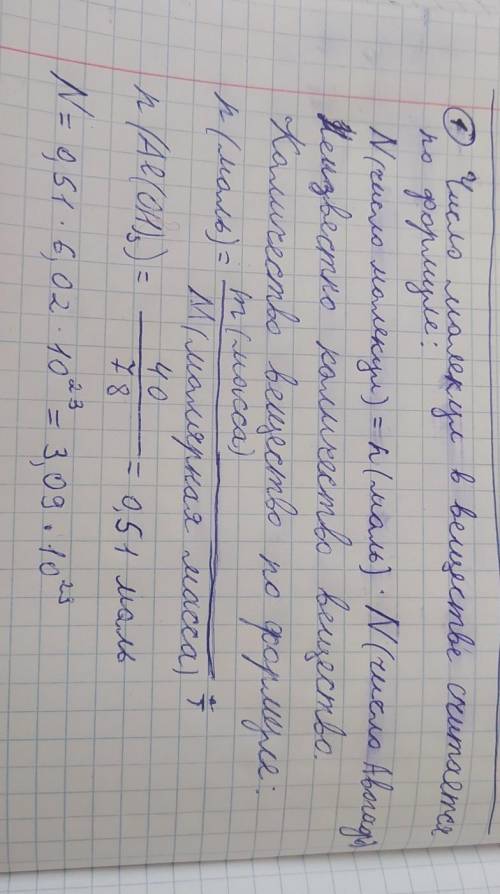 ① Число молекул в веществе считается
по формуле:
N(число молекул) = n(моль) · N(число Авогадр
Неизвестно количество вещество.
Количество вещество по формуле:
n(моль) = m(масса) / M(молярная масса)
n(Al(OH₃) = 40 / 78 = 0,51 моль
N = 0,51 · 6,02 · 10²³ = 3,09 · 10²³